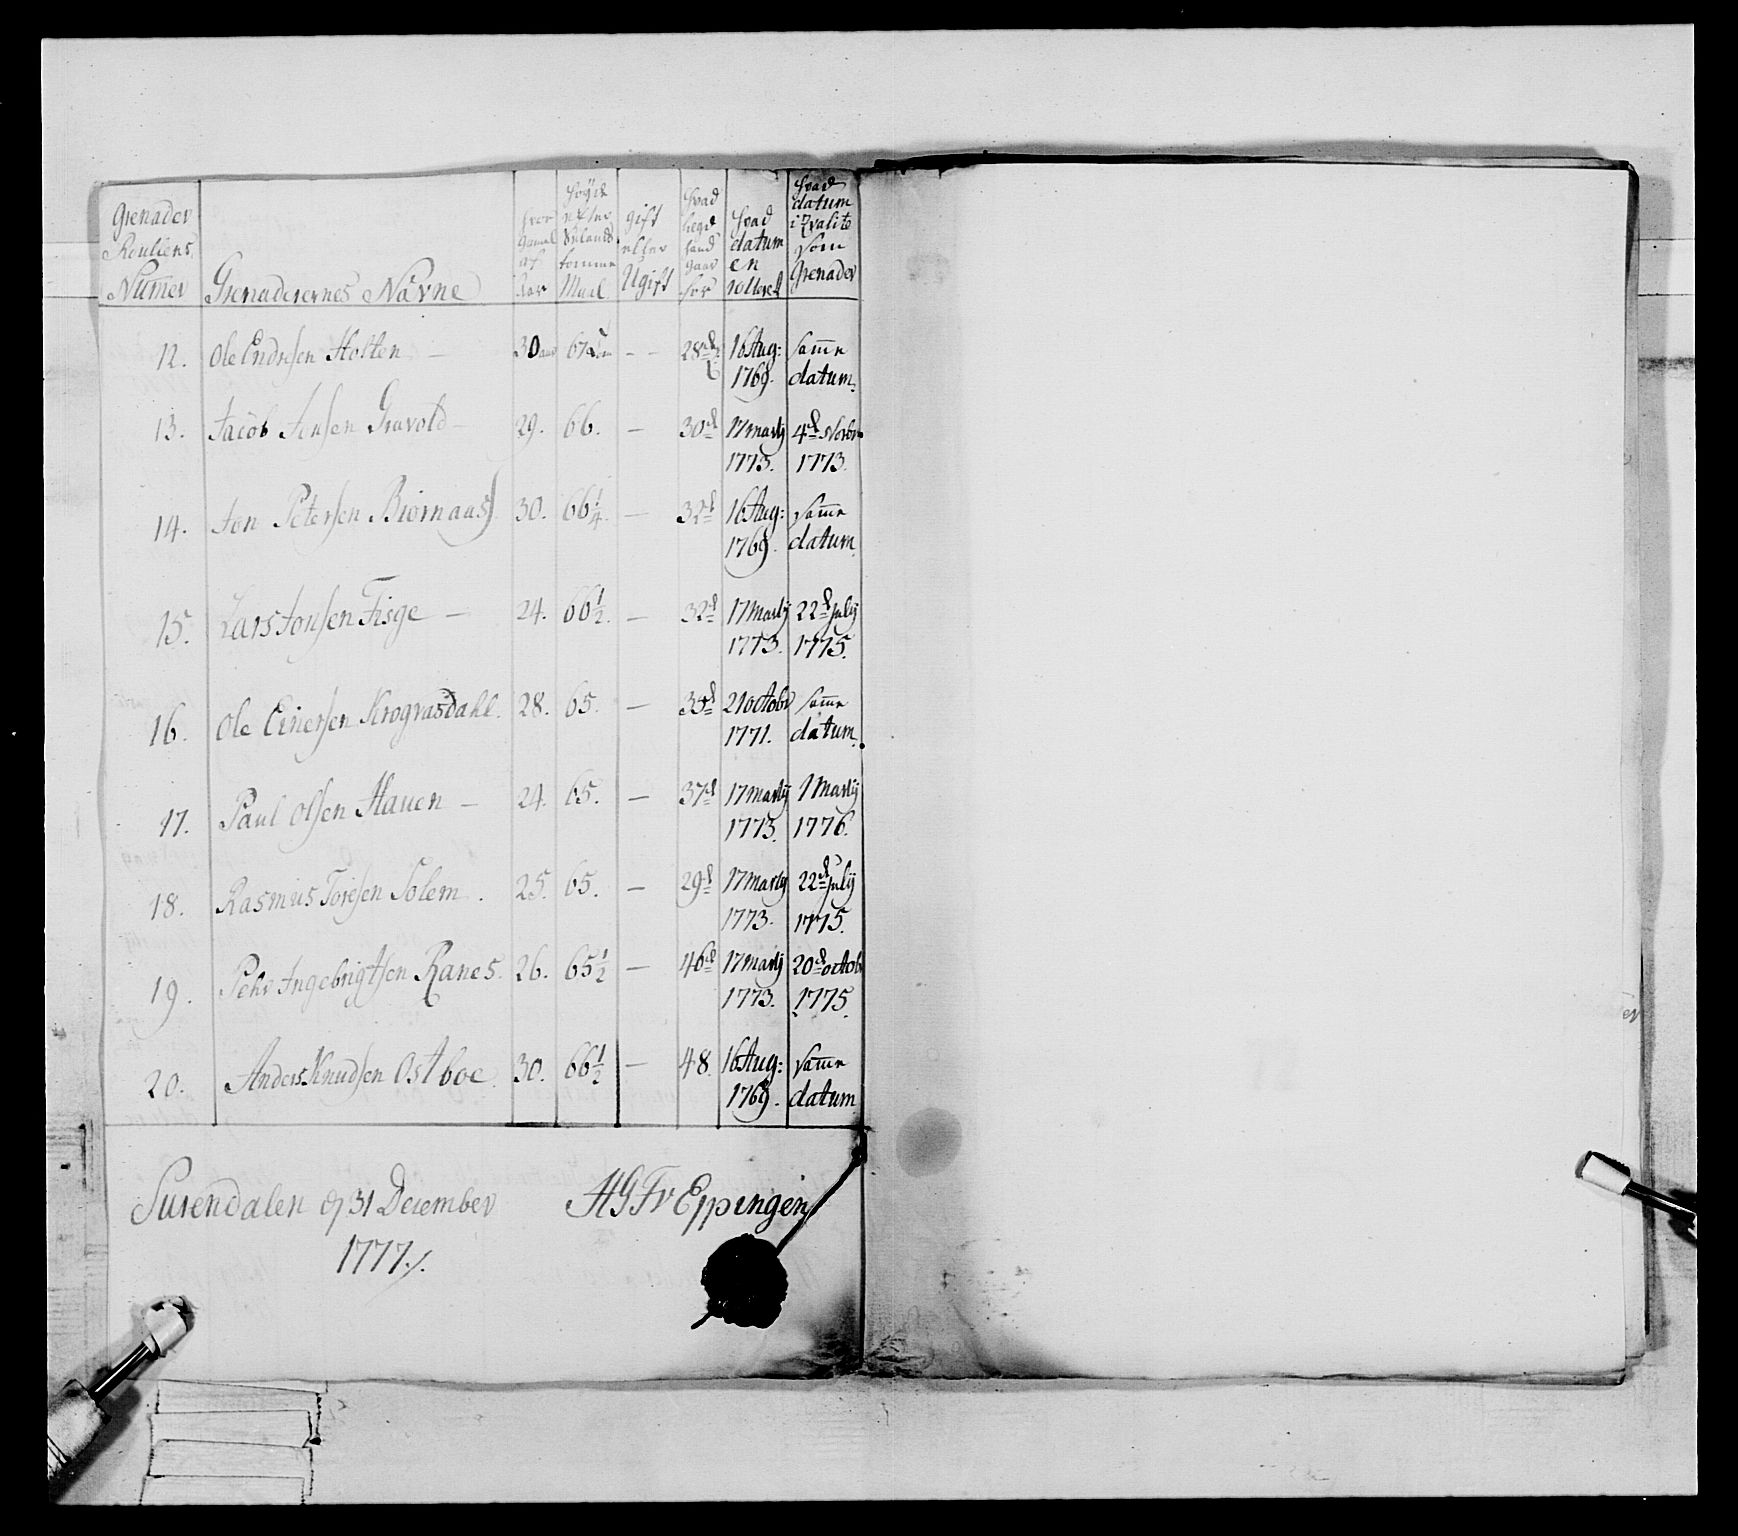 Grenader Roullens Numer | Grenaderernes Navne | hvor gamel af Aar | høyde efter Siælands tomme Maal | gift eller Ugift | hvad legd hand gaar for | hvad datum en rolleret | hvad datum i Qvalite som Grenader
12. Ole Endresen Holten — 30 aar 67 — 28de 16 Aug: 1769. samme datum.
13. Jacob Jonsen Gravold — 29. 66. — 30d 17 Martij 1773. 4d Novbr 1773.
14. Jon Petersen Biornaas 30. 66 1/4. — 32d 16 Aug: 1769. samme datum.
15. Lars Jonsen Fisge — 24. 66 1/2. — 32d 17 Martij 1773. 22d July 1775.
16. Ole Einersen Krogvasdahl. 28. 65. — 35d 21 octobr 1771. samme datum.
17. Paul Olsen Hauen — 24. 65. — 37d 17 Martij 1773. 1 Martij 1776.
18. Rasmus Toresen Solem. 25. 65. — 29d 17 Martij 1773. 22d July 1775.
19. Pehr Ingebrigtsen Ranes. 26. 65 1/2 — 46d 17 Martij 1773. 20d octob 1775.
20. Anders Knudsen Ostboe. 30. 66 1/2 — 48. 16 Aug: 1769. samme datum
Surendalen d 31 December
1777./.
HGFv Eppingen